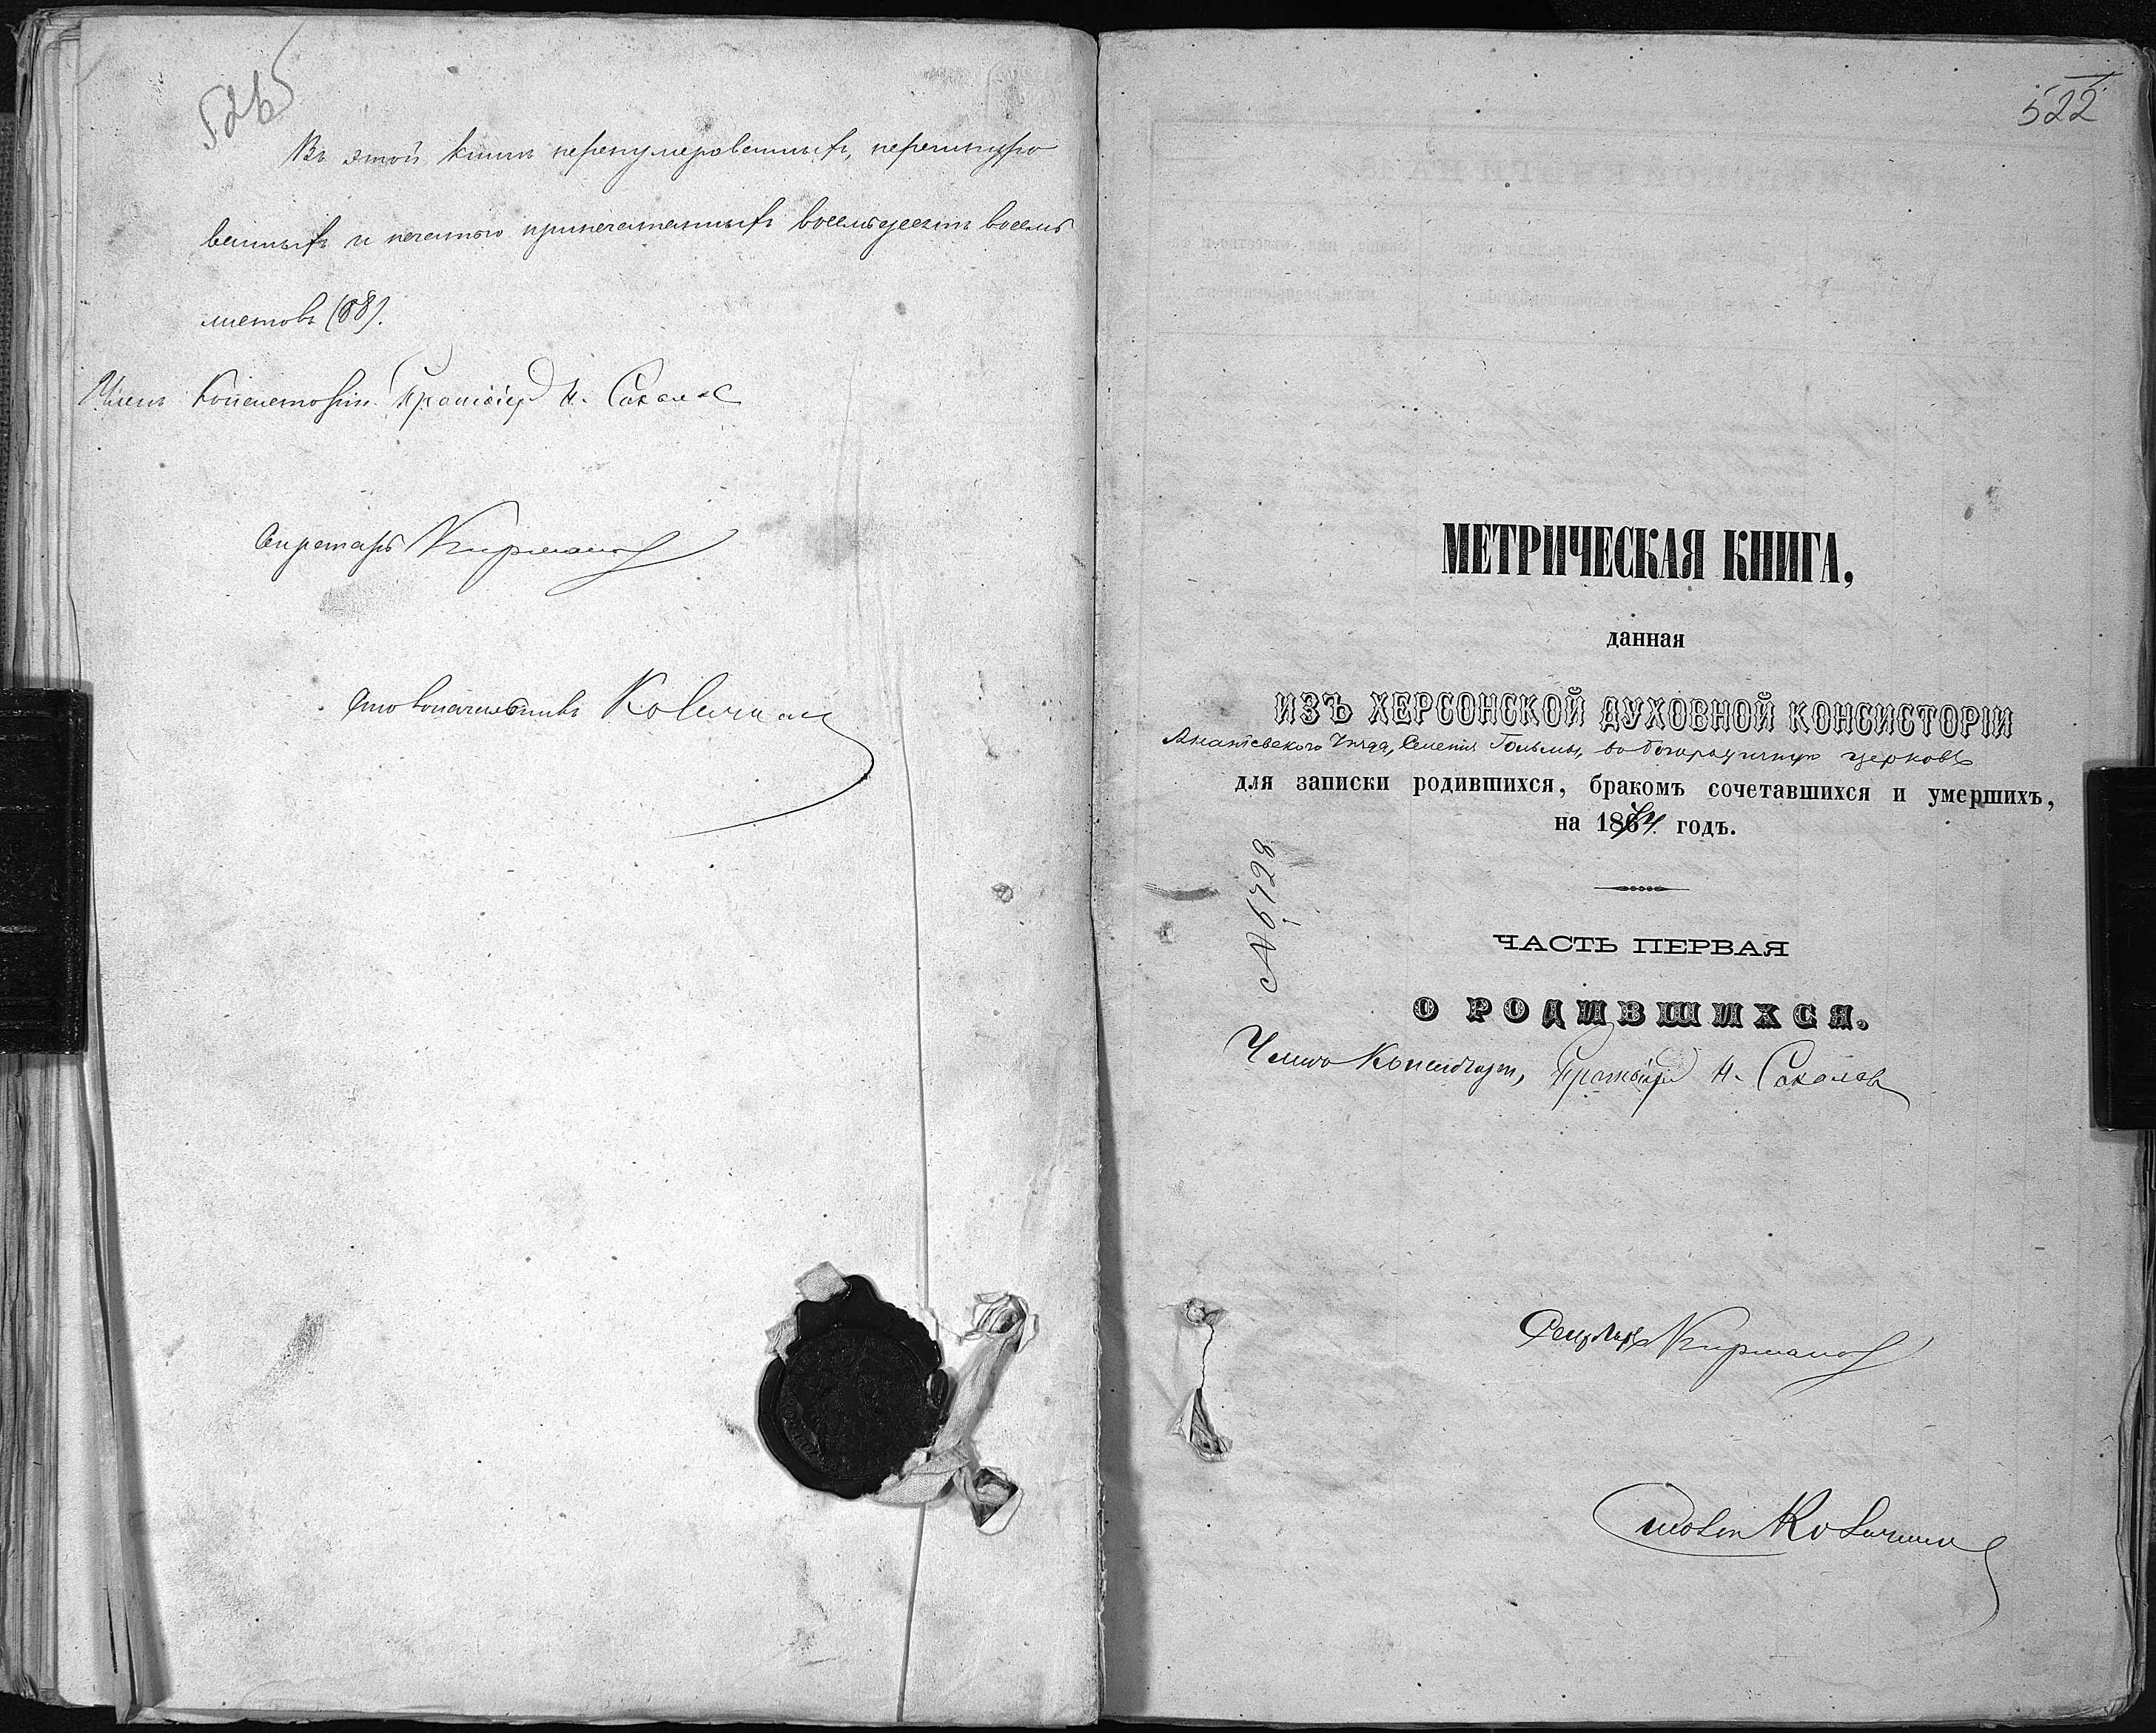 526
Въ этой книгѣ перенумерованныхъ, перешнуро
ванныхъ и печатью припечатанныхъ восемьдесятъ восемь
листовъ (88).
Членъ Консисторіи Протоіерей Н. Соколов
Секретарь
Столоначальникъ
522
МЕТРИЧЕСКАЯ КНИГА,
данная
ИЗЪ ХЕРСОНСКОЙ ДУХОВНОЙ КОНСИСТОРІИ
Ананьевского Уѣзда, Селенія Гольмы, въ богородичную церковь
для записки родившихся, бракомъ сочетавшихся и умершихъ,
на 1864 годъ.
№ 6728
ЧАСТЬ ПЕРВАЯ
О РОДИВШИХСЯ.
Членъ Консисторіи, Протоіерей Н. Соколов
Секретарь